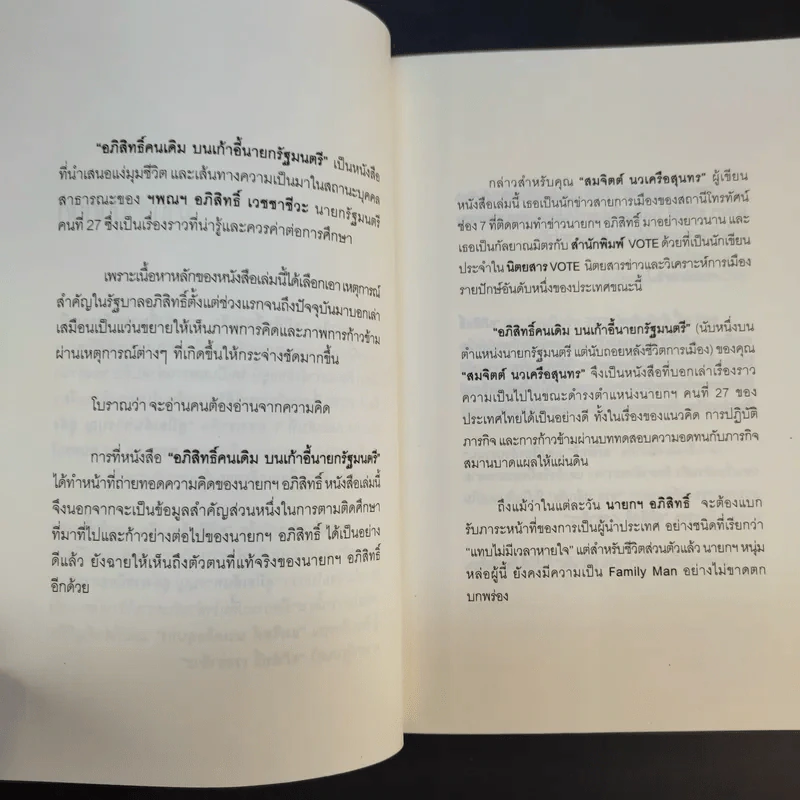 "อภิสิทธิ์คนเดิม บนเก้าอี้นายกรัฐมนตรี" เป็นหนังสือ
ที่นำเสนอแง่มุมชีวิต และเส้นทางความเป็นมาในสถานะบุคคล
สาธารณะของ ฯพณฯ อภิสิทธิ์ เวชชาชีวะ นายกรัฐมนตรี
คนที่ 27 ซึ่งเป็นเรื่องราวที่น่ารู้และควรค่าต่อการศึกษา
เพราะเนื้อหาหลักของหนังสือเล่มนี้ได้เลือกเอา เหตุการณ์
สำคัญในรัฐบาลอภิสิทธิ์ตั้งแต่ช่วงแรกจนถึงปัจจุบันมาบอกเล่า
เสมือนเป็นแว่นขยายให้เห็นภาพการคิดและภาพการก้าวข้าม
ผ่านเหตุการณ์ต่างๆ ที่เกิดขึ้นให้กระจ่างชัดมากขึ้น
โบราณว่า จะอ่านคนต้องอ่านจากความคิด
การที่หนังสือ "อภิสิทธิ์คนเดิม บนเก้าอี้นายกรัฐมนตรี"
ได้ทำหน้าที่ถ่ายทอดความคิดของนายกฯ อภิสิทธิ์ หนังสือเล่มนี้
จึงนอกจากจะเป็นข้อมูลสำคัญส่วนหนึ่งในการตามติดศึกษา
ที่มาที่ไปและก้าวย่างต่อไปของนายกฯ อภิสิทธิ์ ได้เป็นอย่าง
ดีแล้ว ยังฉายให้เห็นถึงตัวตนที่แท้จริงของนายกฯ อภิสิทธิ์
อีกด้วย
กล่าวสำหรับคุณ "สมจิตต์ นวเครือสุนทร" ผู้เขียน
หนังสือเล่มนี้ เธอเป็นนักข่าวสายการเมืองของสถานีโทรทัศน์
ช่อง 7 ที่ติดตามทำข่าวนายกฯ อภิสิทธิ์ มาอย่างยาวนาน และ
เธอเป็นกัลยาณมิตรกับ สำนักพิมพ์ VOTE ด้วยที่เป็นนักเขียน
ประจำใน นิตยสาร VOTE นิตยสารข่าวและวิเคราะห์การเมือง
รายปักษ์อันดับหนึ่งของประเทศขณะนี้
"อภิสิทธิ์คนเดิม บนเก้าอี้นายกรัฐมนตรี" (นับหนึ่งบน
ตำแหน่งนายกรัฐมนตรี แต่นับถอยหลังชีวิตการเมือง) ของคุณ
"สมจิตต์ นวเครือสุนทร" จึงเป็นหนังสือที่บอกเล่าเรื่องราว
ความเป็นไปในขณะดำรงตำแหน่งนายกฯ คนที่ 27 ของ
ประเทศไทยได้เป็นอย่างดี ทั้งในเรื่องของแนวคิด การปฏิบัติ
ภารกิจ และการก้าวข้ามผ่านบททดสอบความอดทนกับภารกิจ
สมานบาดแผลให้แผ่นดิน
ถึงแม้ว่าในแต่ละวัน นายกฯ อภิสิทธิ์ จะต้องแบก
รับภาระหน้าที่ของการเป็นผู้นำประเทศ อย่างชนิดที่เรียกว่า
"แทบไม่มีเวลาหายใจ" แต่สำหรับชีวิตส่วนตัวแล้ว นายกฯ หนุ่ม
หล่อผู้นี้ ยังคงมีความเป็น Family Man อย่างไม่ขาดตก
บกพร่อง